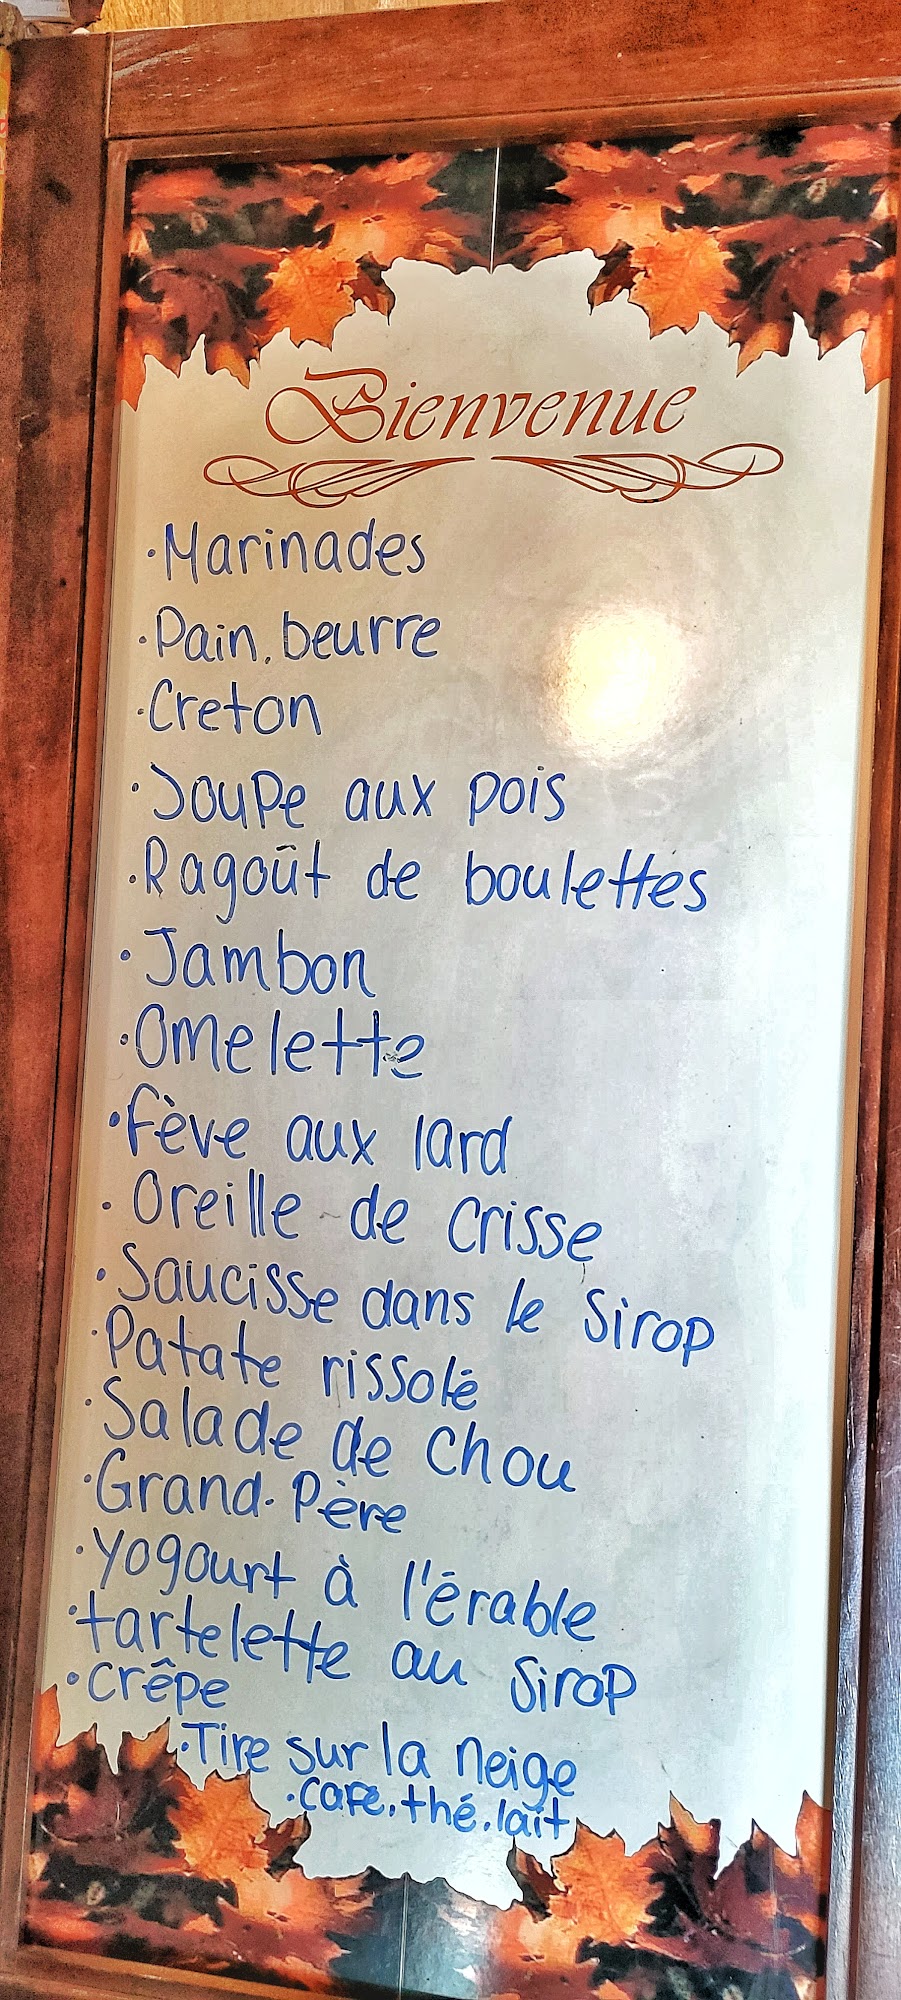 Bienvenue
·Marinades
·Pain, beurre
·Creton
·Soupe aux pois
·Ragoût de boulettes
·Jambon
·Omelette
·Fève aux lard
·Oreille de crisse
·Saucisse dans le sirop
·Patate rissolé
·Salade de chou
·Grand-Père
·Yogourt à l'érable
·tartelette au sirop
·crêpe
·Tire sur la neige
·café, thé, lait